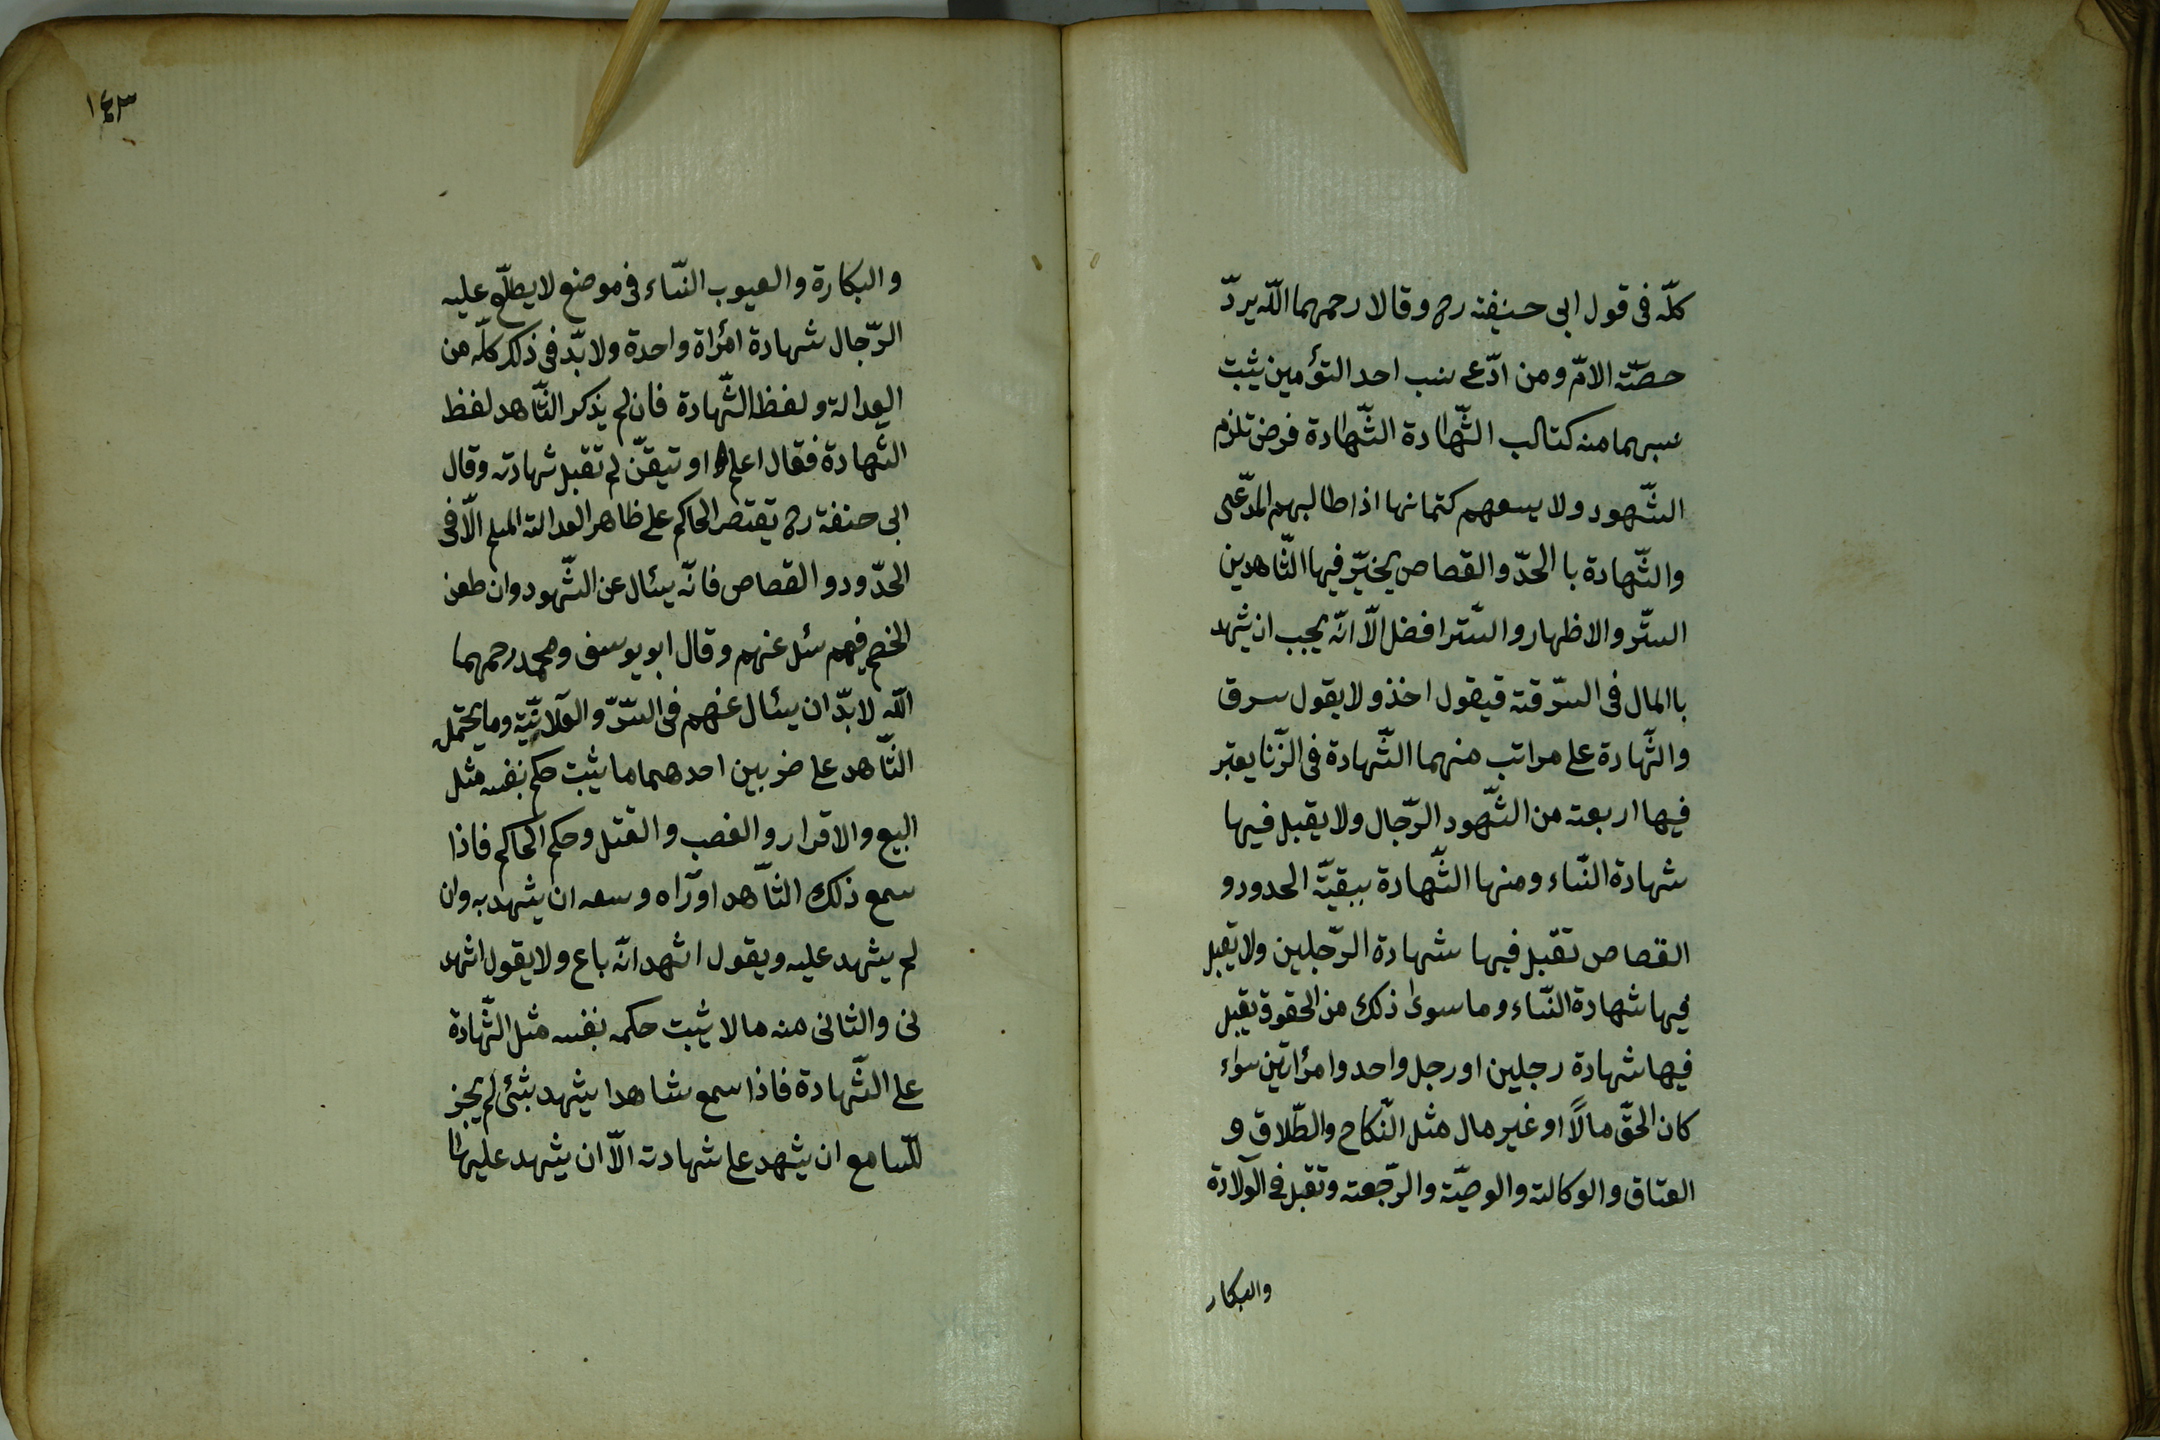 كلّه فى قول ابى حنيفة رح وقالا رحمهما اللّه يردّ
حصّة الامّ ومن ادّعى نسب احد التؤمين يثبت
نسبهما منه كتاب الشّهادة الشّهادة فرض تلزم
الشّهود ولا يسعهم كتمانها اذا طالبهم المدّعى
والشّهادة با الحدّ والقصاص يخيّر فيها الشّاهدين
السّتر والاظهار والسّتر افضل الّا انّه يجب ان يشهد
با المال فى السّرقة فيقول اخذ ولا يقول سرق
والشّهادة على مراتب منهما الشّهادة فى الزّنا يعتبر
فيها اربعة من الشّهود الرّجال ولا يقبل فيها
شهادة النّساء ومنها الشّهادة ببقيّة الحدود و
القصاص تقبل فيها شهادة الرّجلين ولا يقبل
فيها شهادة النّساء وما سوى ذلك من الحقوق يقبل
فيها شهادة رجلين او رجل واحد وامرأتين سواء
كان الحقّ مالًا او غير مال مثل النّكاح والطّلاق و
العتاق والوكالة والوصيّة والرّجعة وتقبل فى الولادة
والبكار
١٤٣
والبكارة والعيوب النّساء فى موضع لا يطلّع عليه
الرّجال شهادة امرأة واحدة ولا بدّ فى ذلك كلّه من
العدالة ولفظ الشّهادة فان لم يذكر الشّاهد لفظ
الشّهادة فقال اعلم او تيقّن لم تقبل شهادته وقال
ابى حنفة رح يقتصر الحاكم على ظاهر العدالة المسلم الّا فى
الحدّود والقصاص فانّه يسئال عن الشّهود وان طعن
الخصم فيهم سئل عنهم وقال ابو يوسف ومحمد رحمهما
اللّه لا بدّ ان يسئال عنهم فى السّرّ والعلانيّة وما يحتمل
الشّاهد على ضربين احدهما ما يثبت حكم بنفسه مثل
البيع والاقرار والغصب والقتل وحكم الحاكم فاذا
سمع ذلك الشّاهد او رآه وسعه ان يشهد به وان
لم يشهد عليه ويقول اشهد انّه باع ولا يقول اشهد
نى والثانى منه ما لا يثبت حكمه بنفسه مثل الشّهادة
على الشّهادة فاذا سمع شاهدا يشهد بشئ لم يجز
للسّامع ان يشهد على شهادته الّا ان يشهد عليها